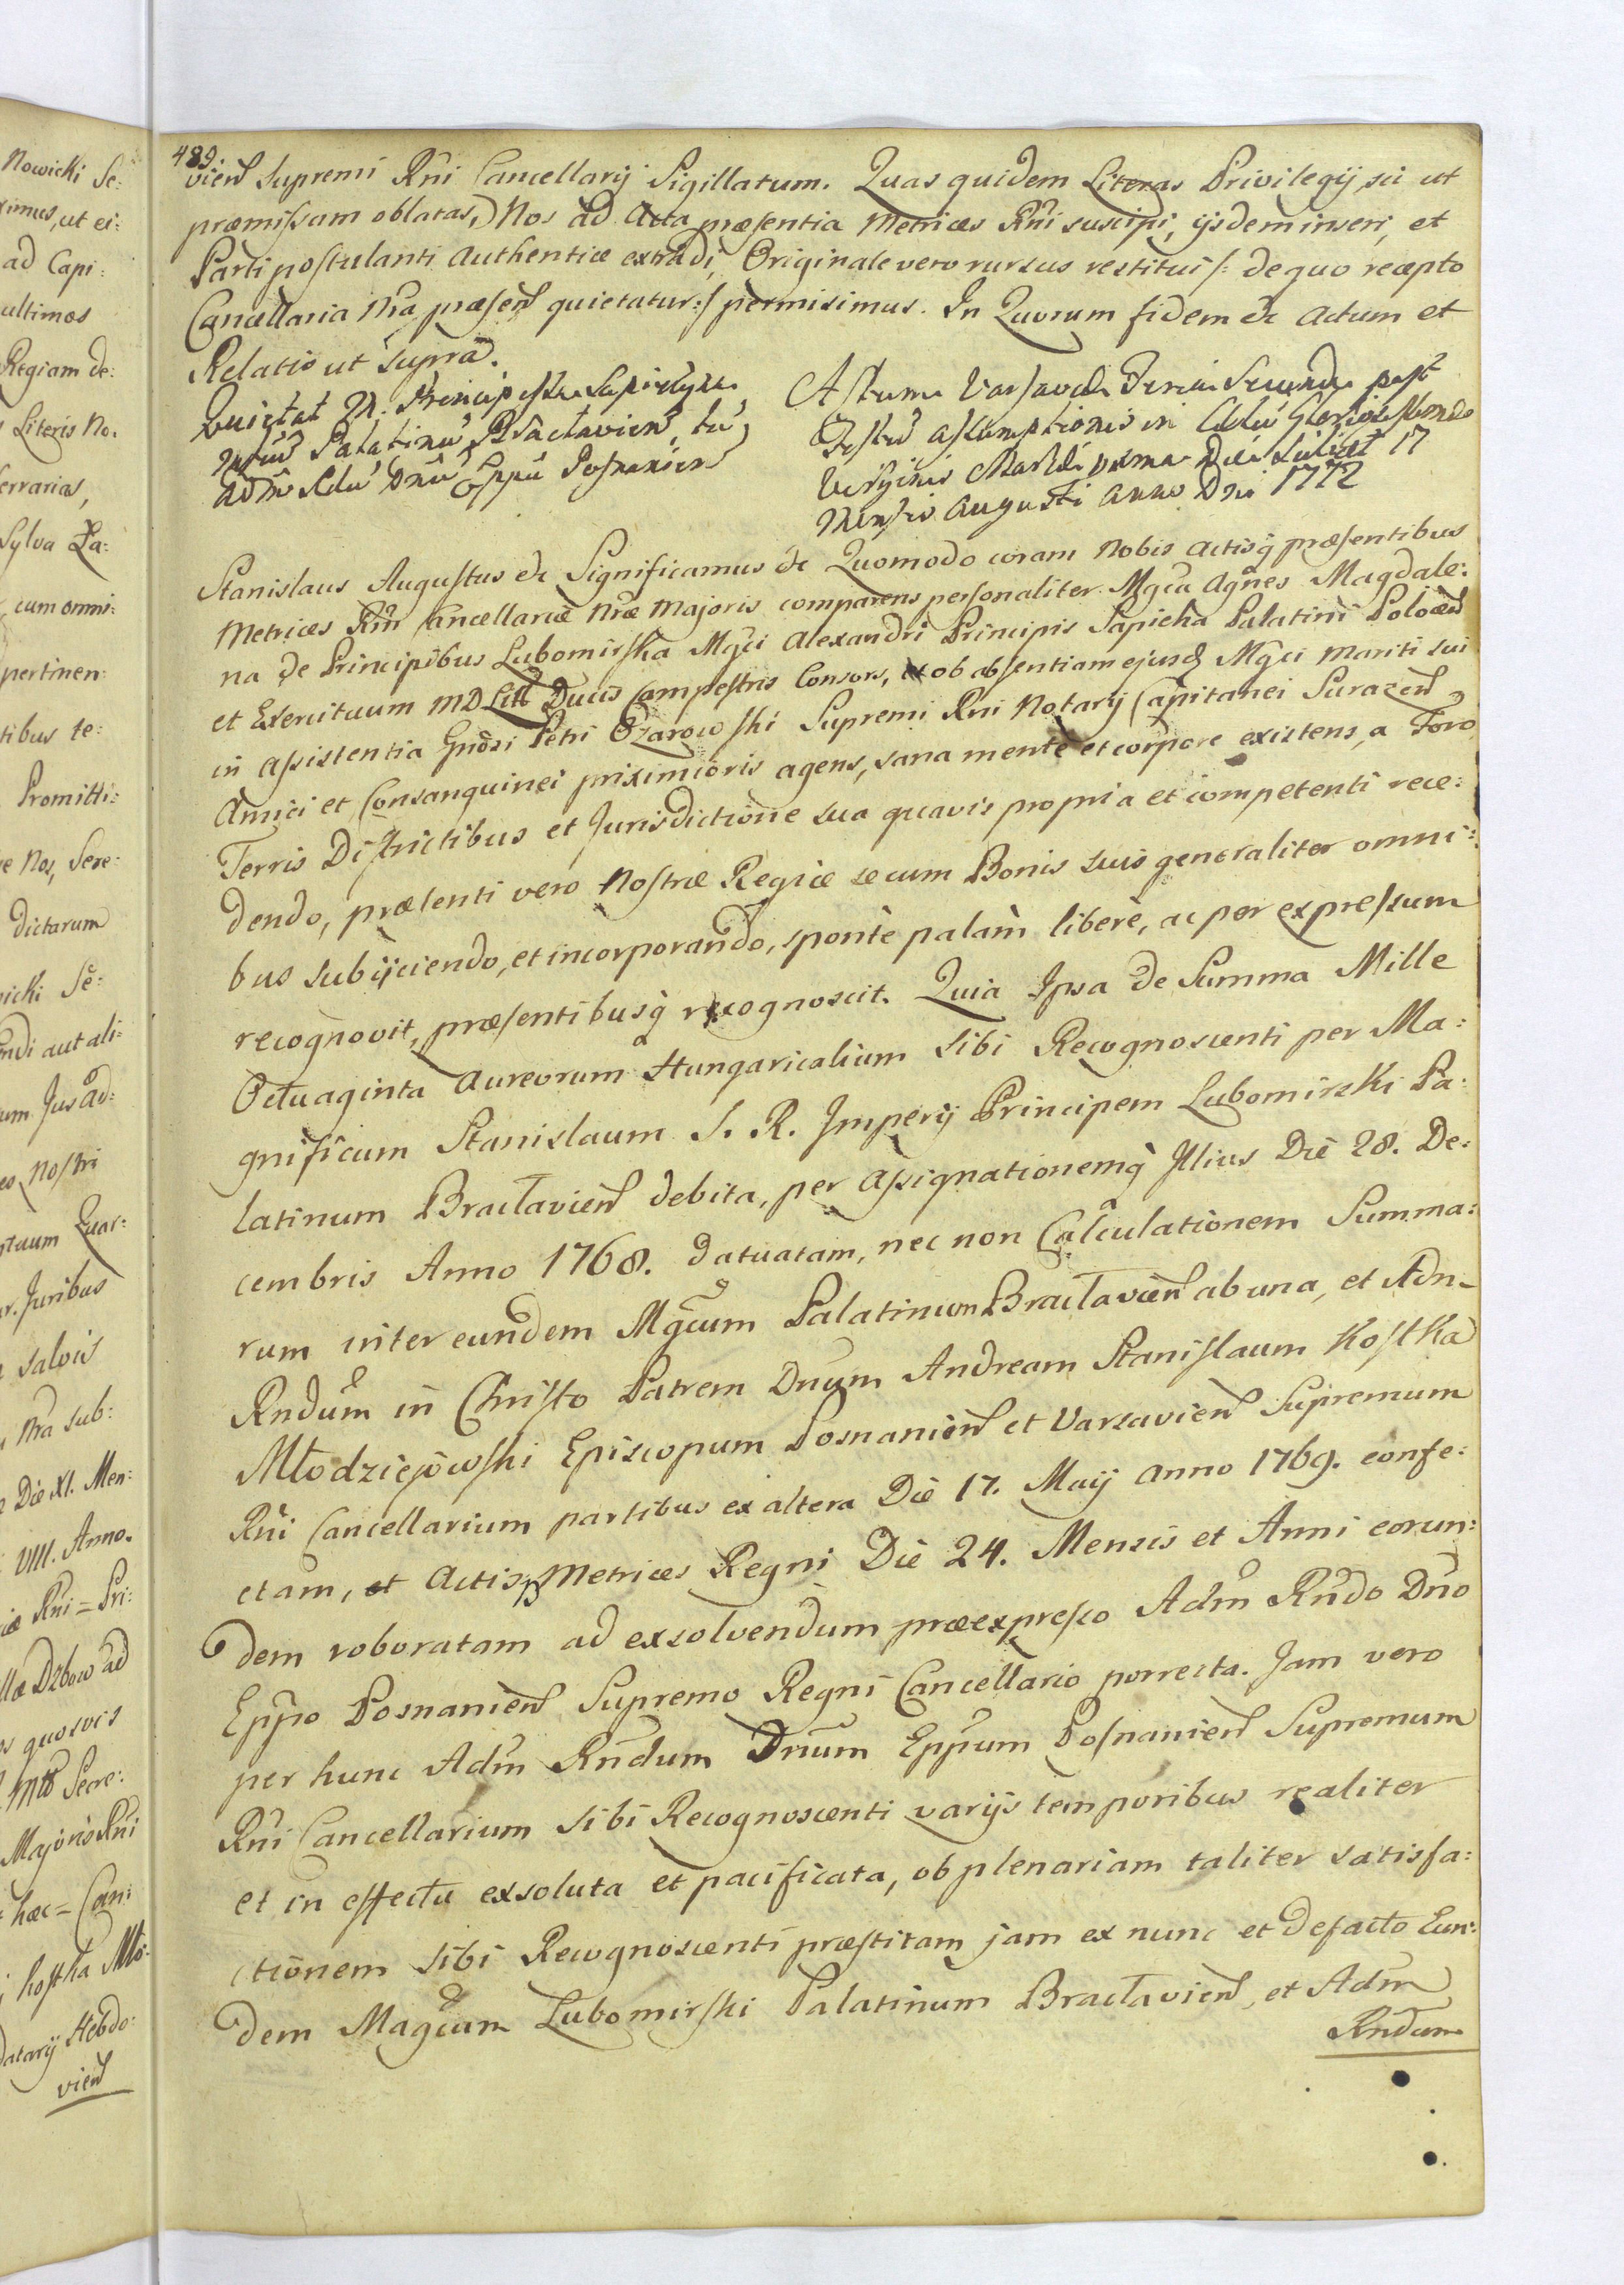 Nowicki Se:
ximus, ut ei:
ad Capi:
ultimos
Regiam de:
Literis No.
ferrarias,
Sylva La:
cum omni:
pertinen:
tibus te:
Promitti:
Nos, Sere:
dictarum
wicki Se:
aut ali:
um Jus ad:
Nostri
Quar:
Juribus
salvis
Nra sub:
Die XI. Men:
VIII. Anno.
Rni = Pri:
Dzbow ad
quosvis
Secre:
Majoris Rni
hac = Can:
Kostka Mło:
Datarij Hebdo:
vien
489.
vien Supremi Rni Cancellarij Sigillatum. Quas quidem Literas Privilegij sic ut
præmissam oblatas, Nos ad Acta præsentia Metrices Rni suscipi, ijsdem inseri, et
Parti postulanti Authentice extradi, Originale vero rursus restitui /: de quo recepto
Cancellaria Nra præsen quietatur :/ permisimus. In Quorum fidem &c Actum et
Relatio ut Supra.
Quietat M. Principissa Sapieżyna
Palatinu Braclavien, tu,
Adm Rdu Dnu Eppu Posnanien
Actum Varsaviæ Feria Secunda post
Festu Assumptionis in Cælu Gloriosissimæ
Virginis Mariæ proxima Die Scilicet 17
Mensis Augusti Anno Dni 1772
Stanislaus Augustus &c Significamus &c Quomodo coram Nobis Actisq præsentibus
Metrices Rni Cancellariæ Nræ Majoris comparens personaliter Mgca Agnes Magdale:
na de Principibus Lubomirska Mgci Alexandri Principis Sapieha Palatini Polocen
et Exercituum M D Litt Ducis Campestris Consors, ob absentiam ejusd Mgci Mariti sui
in Assistentia Gnosi Petri Ożarowski Supremi Rni Notarij Capitanei Surazen
Amici et Consanguinei priximioris agens, sana mente et corpore existens, a Foro
Terris Districtibus et Jurisdictione sua quavis propria et competenti rece:
dendo, præsenti vero Nostræ Regiæ se cum Bonis suis generaliter omni:
bus subijciendo, et incorporando, sponte palam libere, ac per expressum
recognovit, præsentibusq recognoscit. Quia Ipsa de Summa Mille
Octuaginta Aureorum Hungaricalium sibi Recognoscenti per Ma:
gnificum Stanislaum S. R. Imperij Principem Lubomirski Pa:
latinum Braclavien debita, per Assignationemq Illius Die 28. De:
cembris Anno 1768. datuatam, nec non Calculationem Summa:
rum inter eundem Mgcum Palatinum Braclavien ab una, et Adm
Rndum in Christo Patrem Dnum Andream Stanislaum Kostka
Młodziejowski Episcopum Posnanien et Varsavien Supremum
Rni Cancellarium partibus ex altera Die 17. Maij Anno 1769. confe:
ctam, et Actis Metrices Regni Die 24. Mensis et Anni eorun:
dem roboratam ad exsolvendum præexpresso Adm Rndo Dno
Eppo Posnanien Supremo Regni Cancellario porrecta. Jam vero
per hunc Adm Rndum Dnum Eppum Posnanien Supremum
Rni Cancellarium sibi Recognoscenti varijs temporibus realiter
et in effectu exsoluta et pacificata, ob plenariam taliter satisfa:
ctionem sibi Recognoscenti præstitam jam ex nunc et de facto Eun:
dem Magcum Lubomirski Palatinum Braclavien, et Adm
Rndum